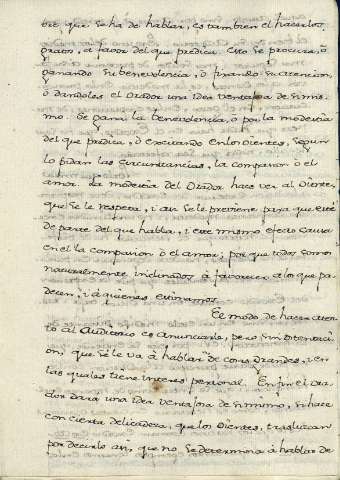 bre que se ha de hablar, es tambien el hacerlos
gratos, a favor del que predica. Esto se procura, ò
ganando su benevolencia, ò fixando su atencion,
ò dandoles el Orador una idea ventajosa de simis-
mo. Se gana la benevolencia, ò por la modestia
del que predica, ò excitando en los Oientes, segun
lo pidan las circunstancias, la compasion ò el
amor. La modestia del Orador hace ver al Oiente,
que se le respeta, i asi se le previene para que esté
de parte del que habla, i este mismo efecto causa
en el la compasion ò el amor; por que todos somos
naturalmente inclinados à favorecer, a los que pa-
decen, i à quienes estimamos.
El modo de hacer aten-
to al Auditorio es anunciarle, pero sin Ostentaci-
on, que se le va à hablar de cosas Grandes, i en
las quales tiene interes personal. En fin el Ora-
dor dara una idea ventajosa de simismo, si hace
con cierta delicadeza, que los Oientes, trasluzcan
por decirlo asi, que no se determina à hablar de